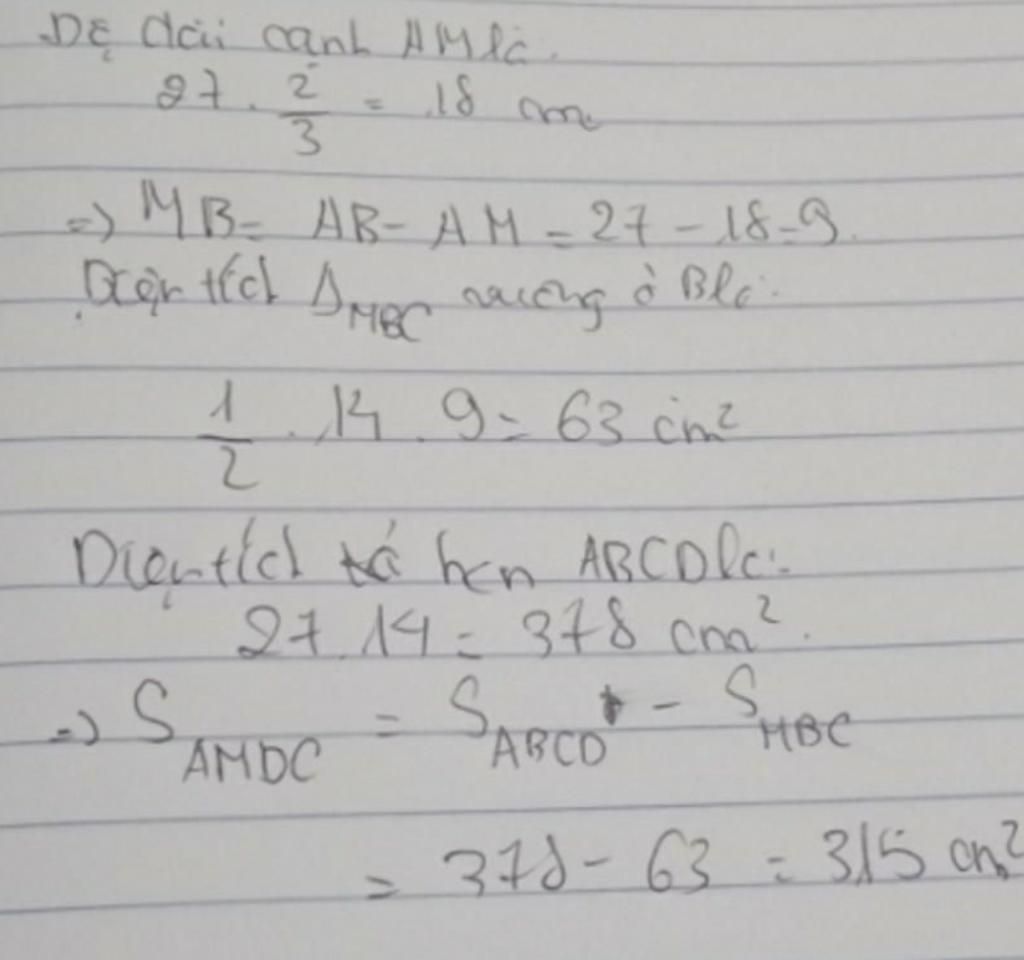 Độ dài cạnh AM là.
27 . 2/3 = 18 cm
=> MB = AB - AM = 27 - 18 = 9.
Diện tích Δ MBC vuông ở B là:
1/2 . 14 . 9 = 63 cm²
Diện tích tứ hcn ABCD là:
27 . 14 = 378 cm².
=> S AMDC = S ABCD - S MBC
= 378 - 63 = 315 cm²